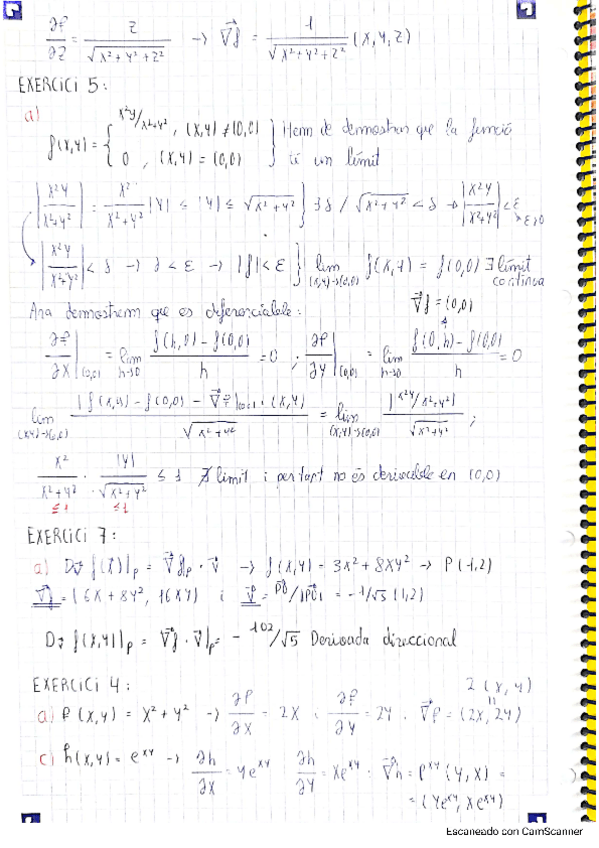 ∂f/∂z = z/√(x²+y²+z²) → ∇f = 1/√(x²+y²+z²) (x, y, z)
EXERCICI 5:
a)
f(x,y) = { x²y/x²+y² , (x,y) ≠ (0,0) } Hem de demostrar que la funció
0 , (x,y) = (0,0) } té un límit
|x²y/x²+y²| = x²/x²+y² |y| ≤ |y| ≤ √(x²+y²) } ∃δ / √(x²+y²) < δ → |x²y/x²+y²| < ε → ε>0
|x²y/x²+y²| < δ → δ < ε → |f| < ε } lim (x,y)→(0,0) f(x,y) = f(0,0) ∃ límit
continua
∇f = (0,0)
Ara demostrem que es diferenciable:
∂f/∂x |(0,0) = lim h→0 f(h,0) - f(0,0) / h = 0 ; ∂f/∂y |(0,0) = lim h→0 f(0,h) - f(0,0) / h = 0
lim (x,y)→(0,0) |f(x,y) - f(0,0) - ∇f|(0,0) · (x,y)| / √(x²+y²) = lim (x,y)→(0,0) |x²y/x²+y²| / √(x²+y²) ;
x²/x²+y² · |y|/√(x²+y²) ≤ 1 ∄ límit i per tant no és derivable en (0,0)
≤1 ≤1
EXERCICI 7:
a) Dv f(x)|p = ∇f|p · v → f(x,y) = 3x² + 8xy² → P(-1,2)
∇f = (6x + 8y², 16xy) i v = PQ/|PQ| = -1/√5 (1,2)
Dv f(x,y)|p = ∇f · v|p = - 102/√5 Derivada direccional
EXERCICI 4:
2(x,y)
a) f(x,y) = x² + y² → ∂f/∂x = 2x ; ∂f/∂y = 2y . ∇f = (2x, 2y)
c) h(x,y) = e^xy → ∂h/∂x = ye^xy ∂h/∂y = xe^xy : ∇h = e^xy (y,x) =
= (ye^xy, xe^xy)
Escaneado con CamScanner